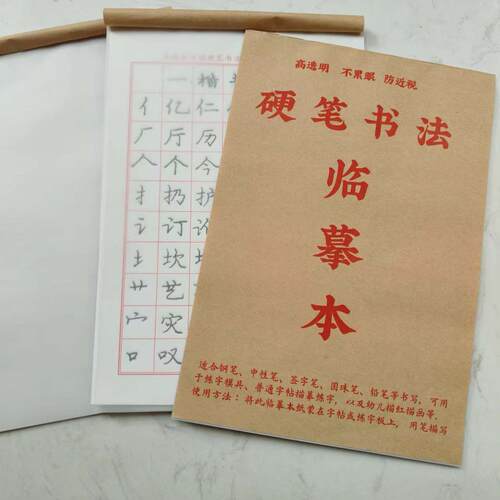 一 楷
亻 亿 仁
厂 厅 历
人 个 今
扌 扔 护
讠 订
土 坎
艹 艺
宀 灾
口 叹
高透明 不累眼 防近视
硬笔书法
临
摹
本
适合钢笔、中性笔、签字笔、圆珠笔、铅笔等书写,可用
于练字模具、普通字帖描摹练字,以及幼儿描红描画等。
使用方法:将此临摹本纸蒙在字帖或练字板上,用笔描写